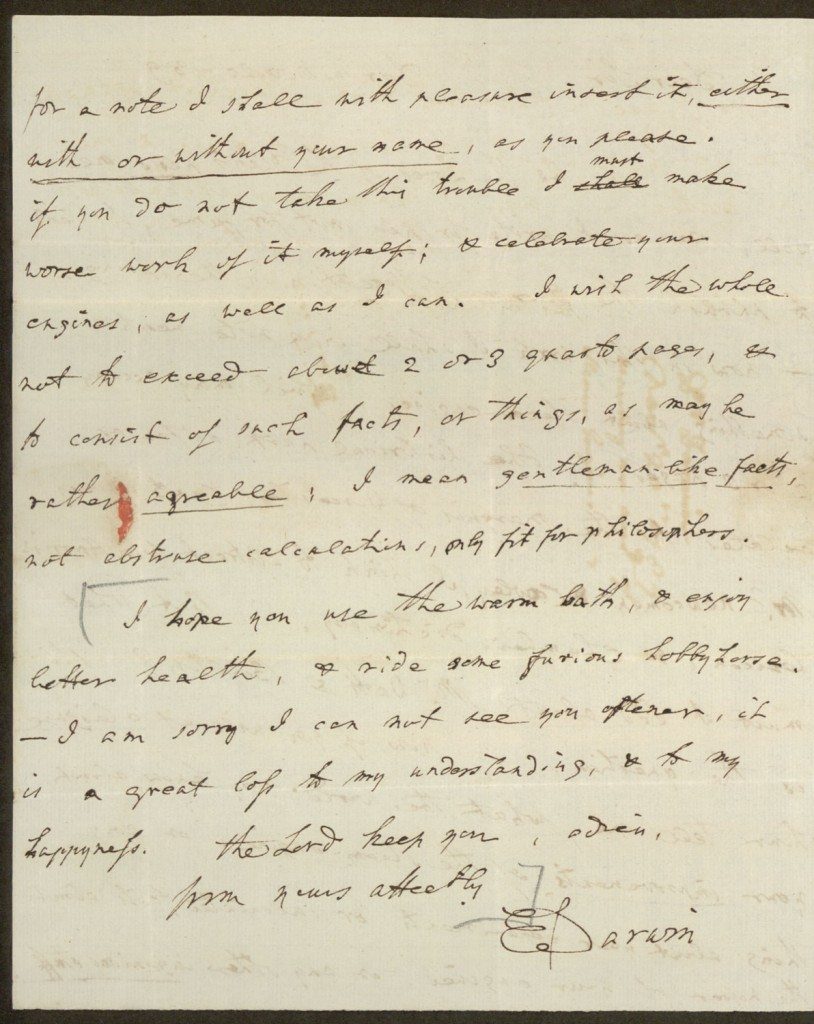 for a note I shall with pleasure insert it, either
with or without your name, as you please.
must
if you do not take this trouble I shall make
worse work of it myself; & celebrate your
engines, as well as I can. I wish the whole
not to exceed about 2 or 3 quarto pages, &
to consist of such facts, or things, as may be
rather agreable; I mean gentleman-like facts,
not abstruse calculations, only fit for philosophers.
I hope you use the warm bath, & enjoy
better health, & ride some furious hobbyhorse.
— I am sorry I can not see you oftener, it
is a great loſs to my understanding, & to my
happyneſs. the Lord keep you, adieu,
from yours affectly
E Darwin